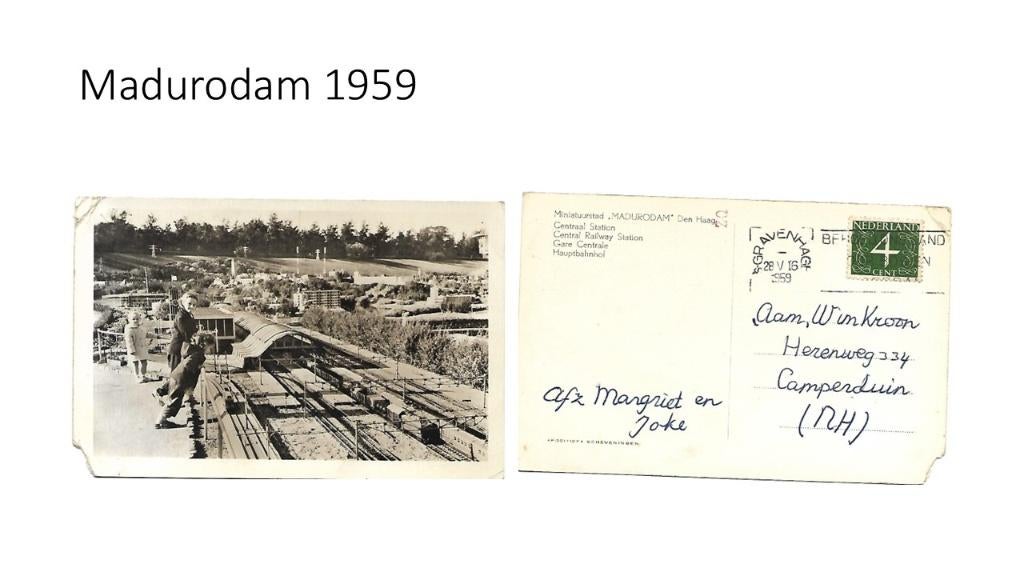 Madurodam 1959
Miniatuurstad „MADURODAM" Den Haag
Centraal Station
Central Railway Station
Gare Centrale
Hauptbahnhof
'SGRAVENHAGE
28 V 16
1959
NEDERLAND
4
CENT
Aam, Wim Kroon
Herenweg 334
Camperduin
(NH)
Afz Margriet en
Joke